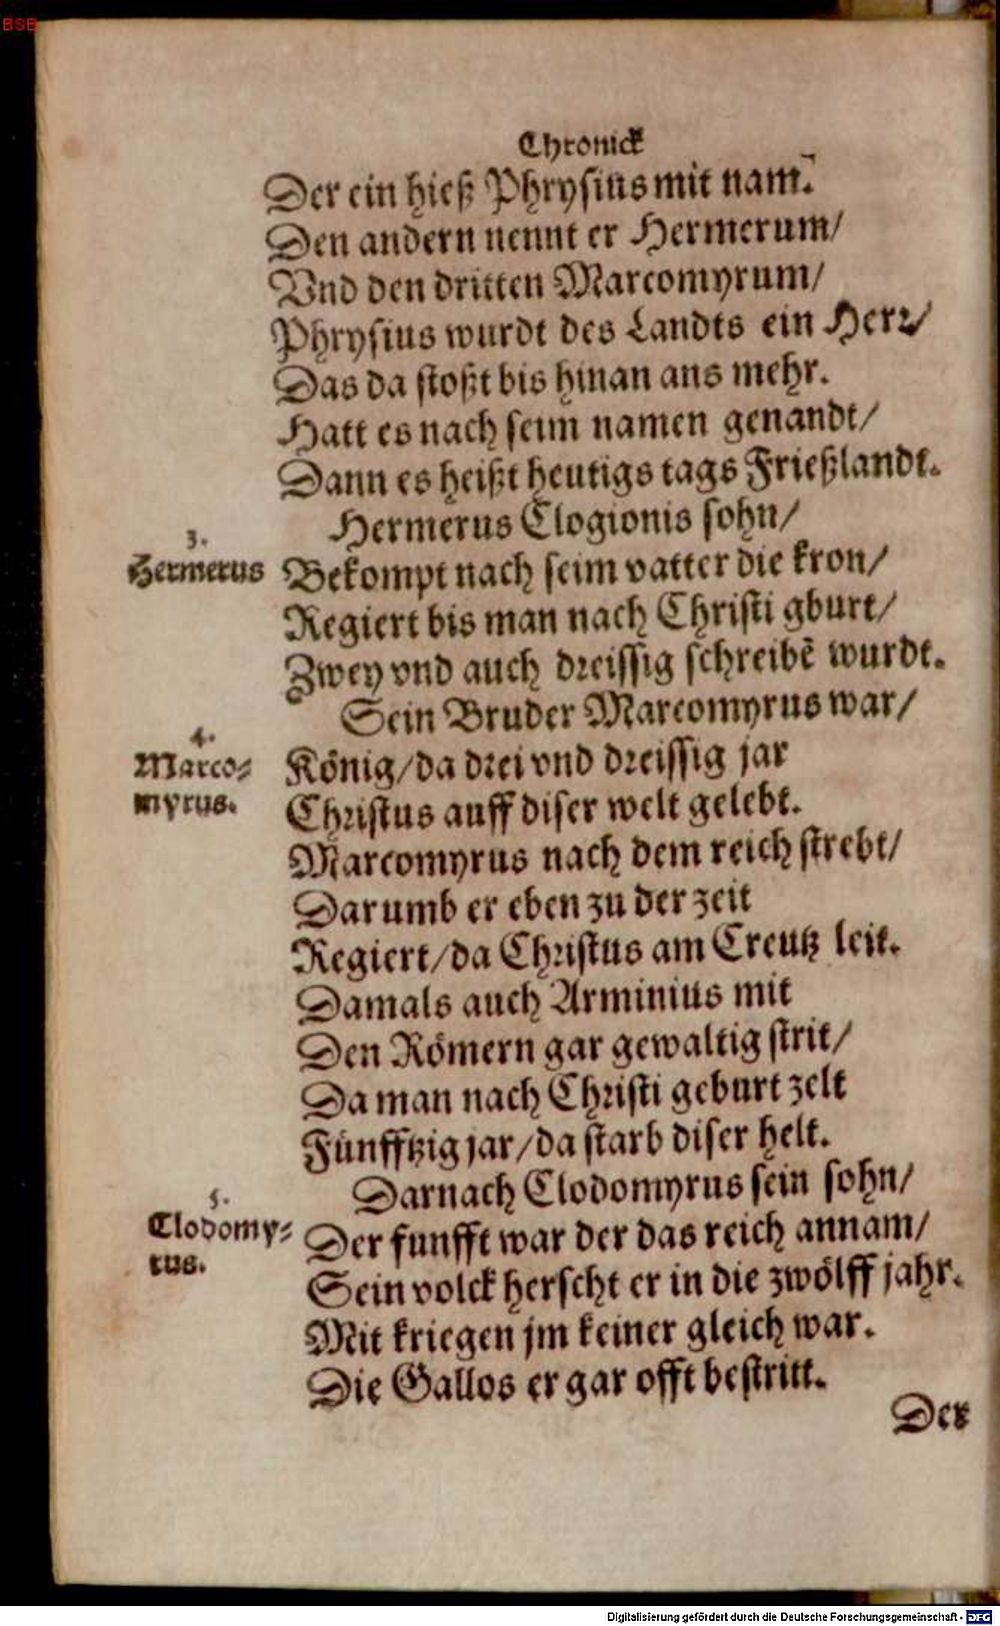 BSB
Chronick
Der ein hieß Phrysius mit nam̃.
Den andern nennt er Hermerum/
Vnd den dritten Marcomyrum/
Phrysius wurdt des Landts ein Herr/
Das da stoßt bis hinan ans mehr.
Hatt es nach seim namen genandt/
Dann es heißt heutigs tags Frießlandt.
Hermerus Clogionis sohn/
3.
Hermerus
Bekompt nach seim vatter die kron/
Regiert bis man nach Christi gburt/
Zwey vnd auch dreissig schreibẽ wurdt.
Sein Bruder Marcomyrus war/
4.
Marco⸗
myrus.
König/da drei vnd dreissig jar
Christus auff diser welt gelebt.
Marcomyrus nach dem reich strebt/
Darumb er eben zu der zeit
Regiert/da Christus am Creutz leit.
Damals auch Arminius mit
Den Römern gar gewaltig strit/
Da man nach Christi geburt zelt
Fünfftzig jar/da starb diser helt.
Darnach Clodomyrus sein sohn/
5.
Clodomy⸗
rus.
Der funfft war der das reich annam/
Sein volck herscht er in die zwölff jahr.
Mit kriegen jm keiner gleich war.
Die Gallos er gar offt bestritt.
Der
Digitalisierung gefördert durch die Deutsche Forschungsgemeinschaft - DFG